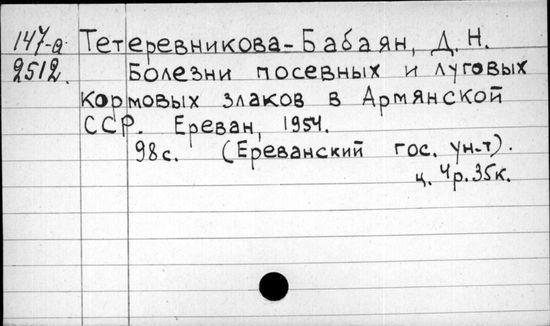 147-а Тетеревникова-Бабаян, Д. Н.
2512. Болезни посевных и луговых
кормовых злаков в Армянской
ССР. Ереван, 1954.
98с. (Ереванский гос. ун-т).
ц. 4р.35к.